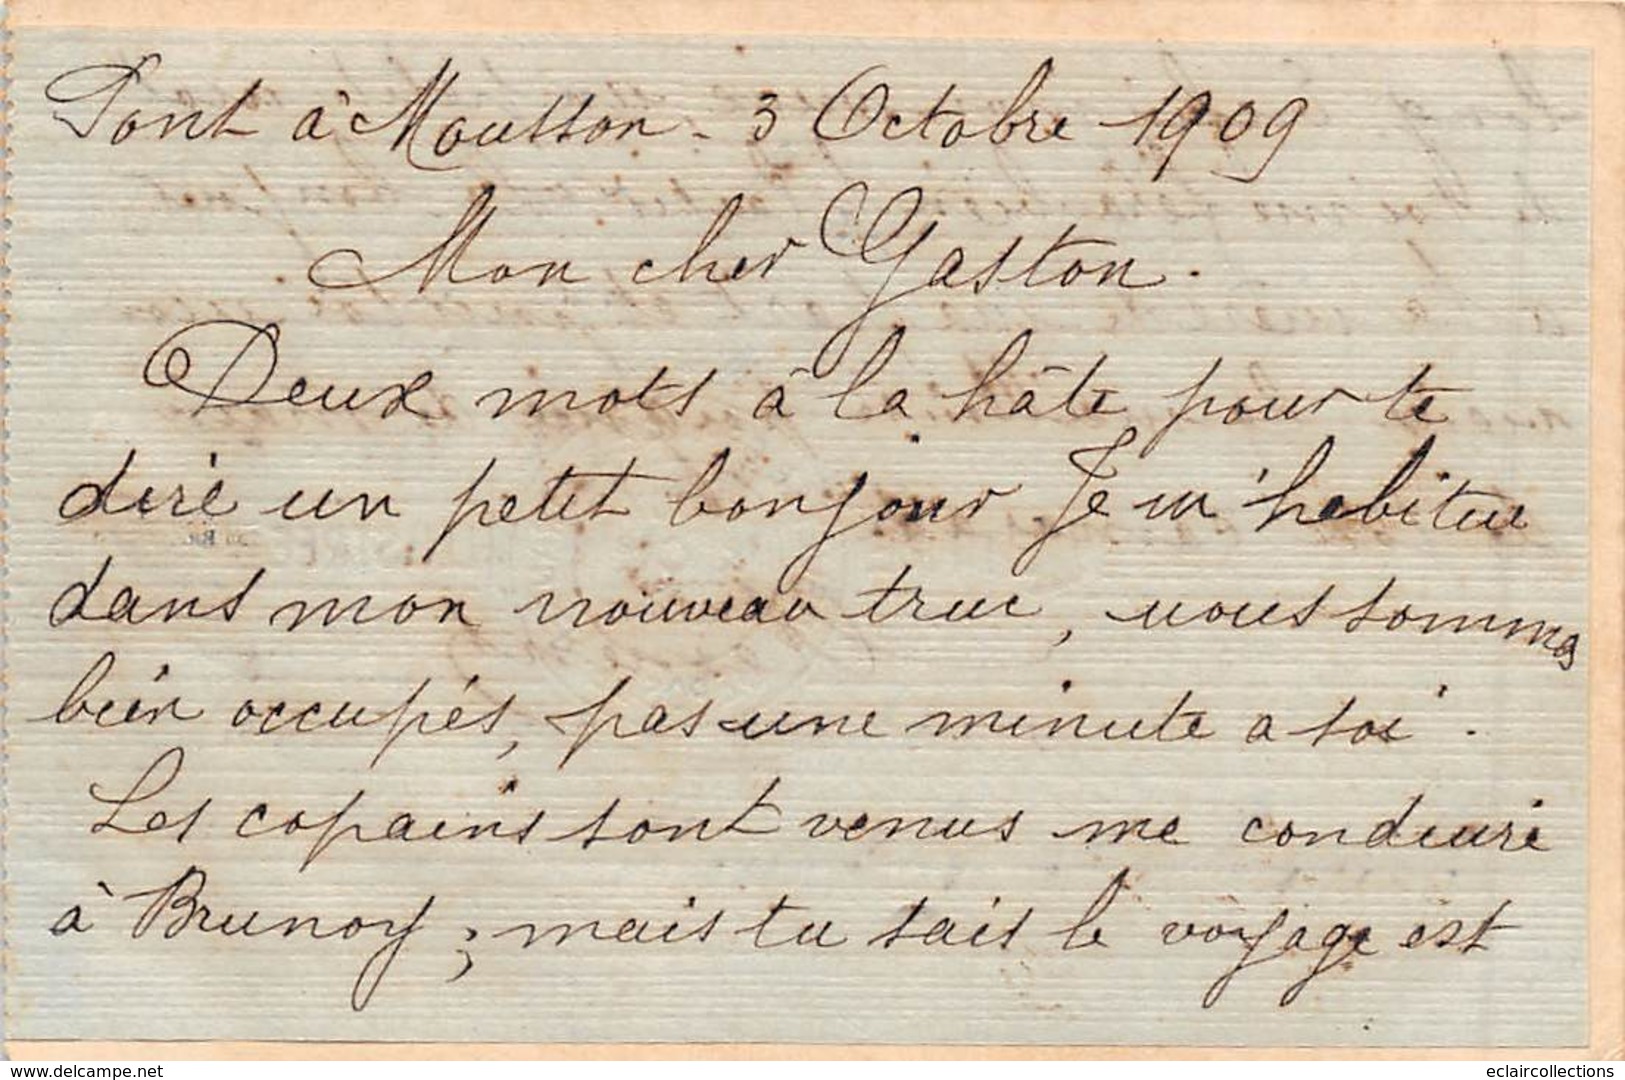 Pont à Mousson - 3 Octobre 1909
Mon cher Gaston.
Deux mots à la hâte pour te
dire un petit bonjour Je m'habitue
dans mon nouveau truc, nous sommes
bien occupés, pas une minute a soi.
Les copains sont venus me conduire
à Brunoy; mais tu sais le voyage est
www.delcampe.net
eclaircollections